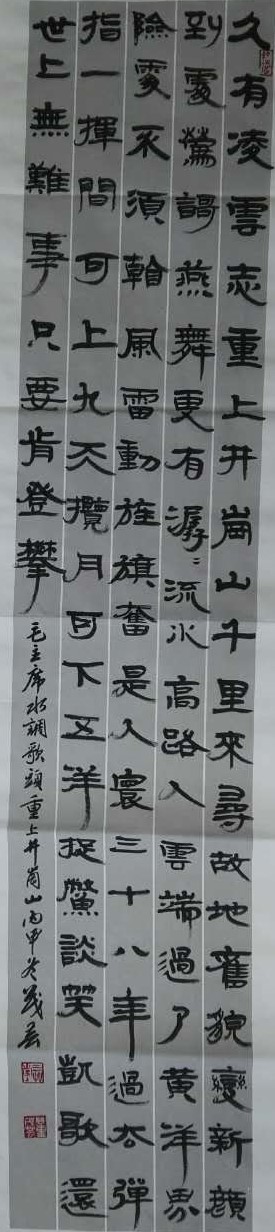 久有凌雲志重上井崗山千里來尋故地舊貌變新顔
到處鶯謌燕舞更有潺〻流水高路入雲端過了黄洋界
險處不須看風雷動旌旗奮是人寰三十八年過去彈
指一揮間可上九天攬月可下五洋捉鱉談笑凱歌還
世上無難事只要肯登攀
毛主席水調歌頭重上井崗山丙申冬